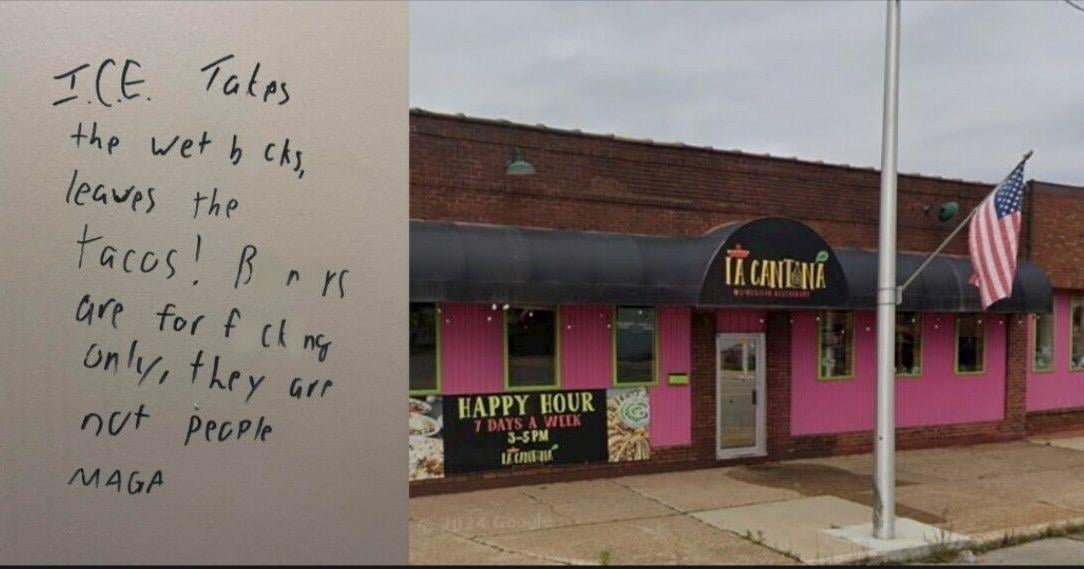 I.C.E. Takes
the wet b cks,
leaves the
tacos! B n rs
are for f ck ng
only, they are
not people
MAGA
LA CANTINA
MEXICAN RESTAURANT
HAPPY HOUR
7 DAYS A WEEK
3-5 PM
LA CANTINA
© 2024 Google